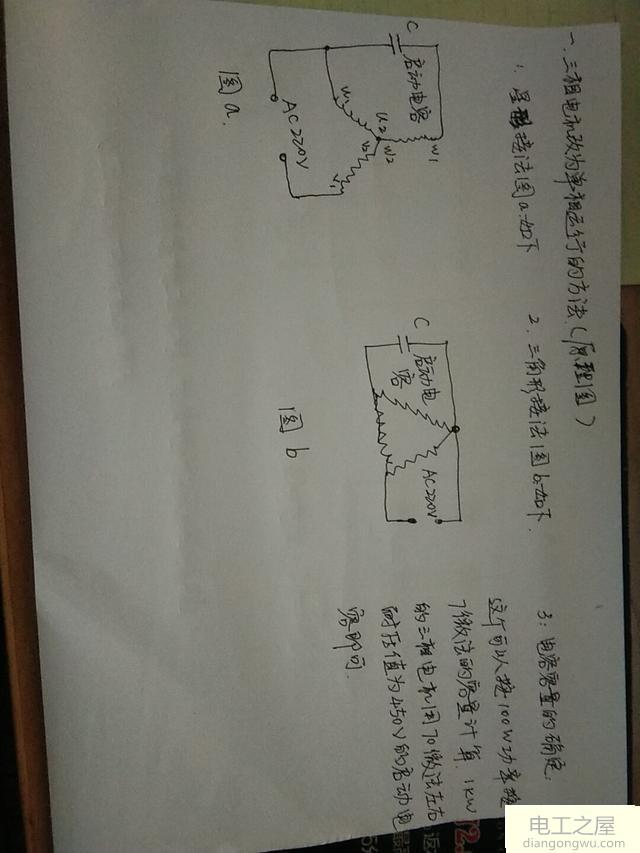 一、三相电机改为单相运行的方法（原理图）
1. 星形接法图a:如下
2. 三角形接法图b:如下.
C
启动电容
W1
U1
U2
W2
V2
V1
AC220V
图a.
C
启动电
容
AC220V
图b
3: 电容容量的确定:
这个可以按100W功率接
7微法的容量计算. 1KW
的三相电机用70微法左右
耐压值为450V的启动电
容即可.
电工之屋
diangongwu.com